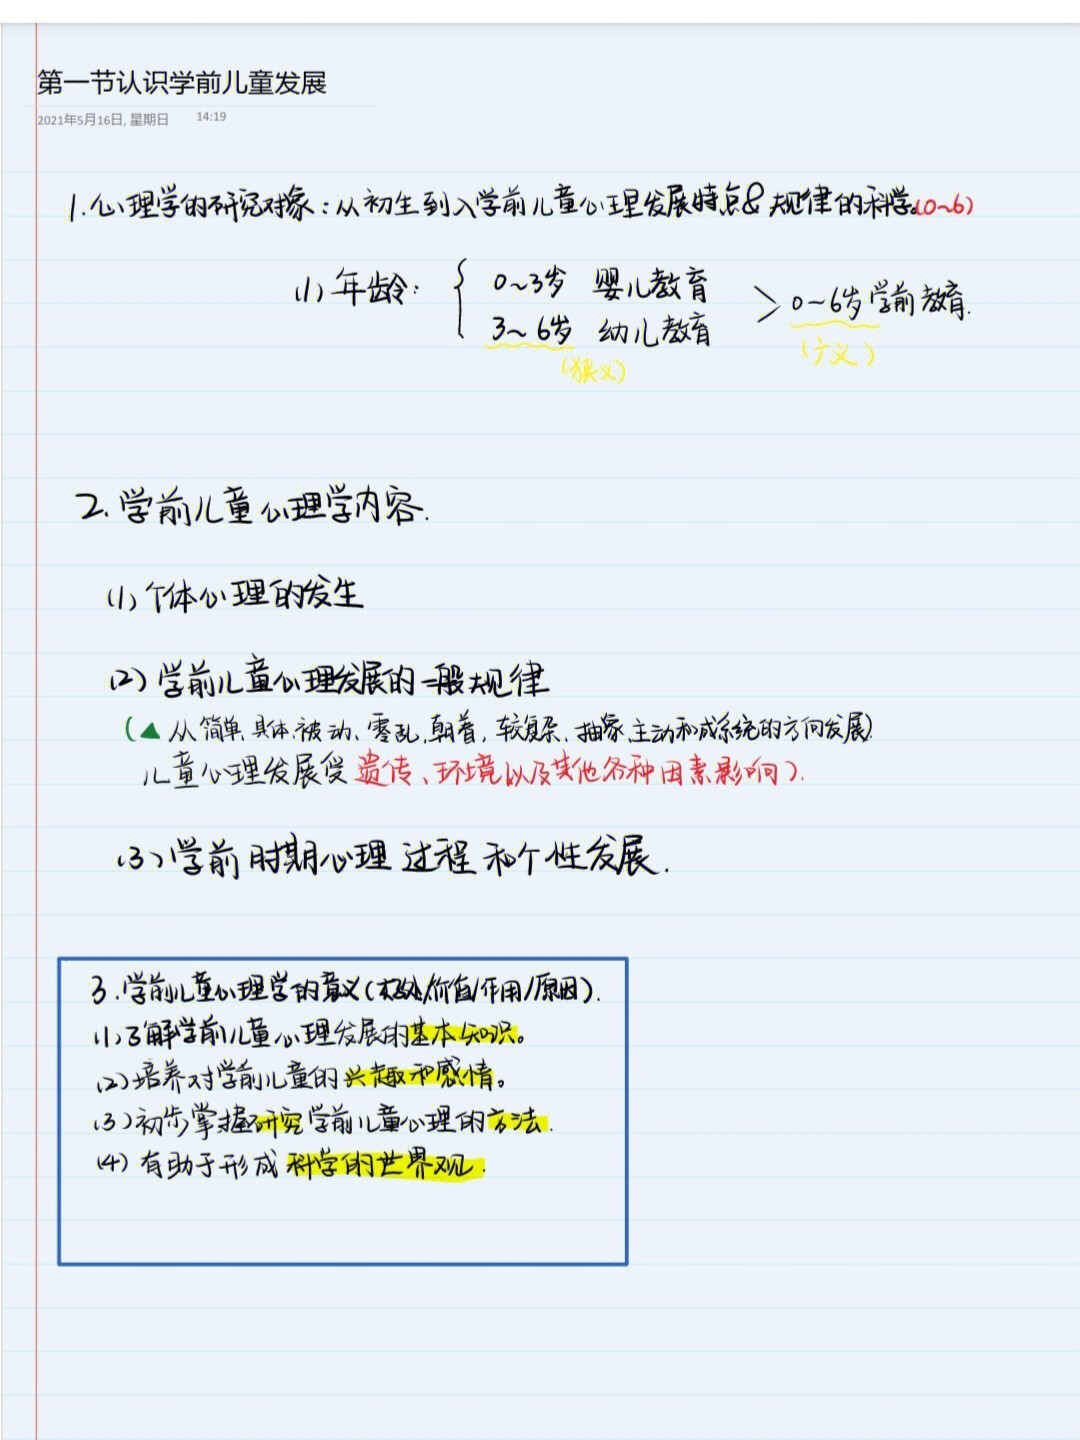 第一节认识学前儿童发展
2021年5月16日, 星期日 14:19
1.心理学的研究对象：从初生到入学前儿童心理发展特点&规律的科学。(0~6)
(1)年龄： { 0~3岁 婴儿教育
3~6岁 幼儿教育 > 0~6岁学前教育.
(狭义) (广义)
2.学前儿童心理学内容.
(1)个体心理的发生
(2)学前儿童心理发展的一般规律
(▲从简单、具体、被动、零乱、朝着，较复杂、抽象、主动和成系统的方向发展)
儿童心理发展受遗传、环境以及其他各种因素影响).
(3)学前时期心理过程和个性发展.
3.学前儿童心理学的意义(好处/价值/作用/原因).
(1)了解学前儿童心理发展的基本知识。
(2)培养对学前儿童的兴趣和感情。
(3)初步掌握研究学前儿童心理的方法.
(4)有助于形成科学的世界观.